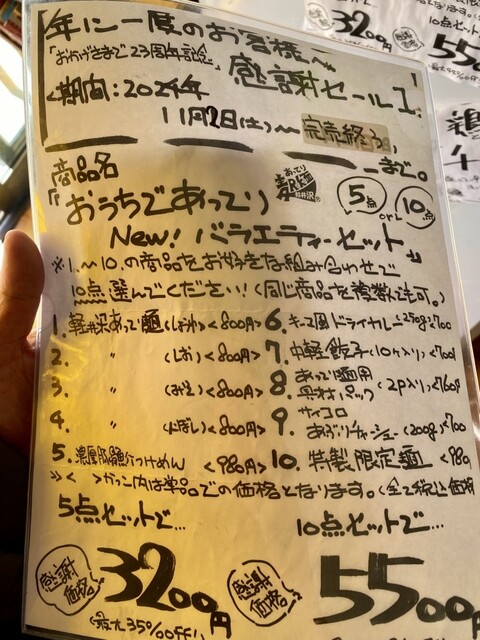 年に一度のお客様へ
「おかげさまで23周年記念」感謝セール1
期間:2024年
11月2日(土)〜完売終了
まで。
商品名
「おうちであってり
5点 or 10点
New! バラエティーセット」
※1.〜10.の商品をお好きな組み合わせで
10点選んでください!(同じ商品を複数注可。)
1. 軽井沢あって麺(しょうゆ)<800円>
2. 〃 (しお)<800円>
3. 〃 (みそ)<800円>
4. 〃 <800円>
5. つけめん <980円>
6. キーマ風ドライカレー(250g)<700
7. 中軽餃子(10ヶ入り)<700
8. あって麺用
具材パック(2P入り)<760円
9. サイコロ
あぶりチャーシュー(200g)<700
10. 特製限定麺 <980
※< >かっこ内は単品での価格となります。(全て税込価格
5点セットで...
感謝価格 3200円
(最大35%off!)
10点セットで...
感謝価格! 5500円
3200円
10点セット
550